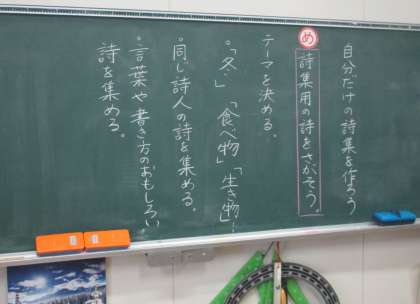 自分だけの詩集を作ろう
め
詩集用の詩をさがそう。
テーマを決める。
・「冬」「食べ物」「生き物」…
・同じ詩人の詩を集める。
・言葉や書き方のおもしろい
詩を集める。